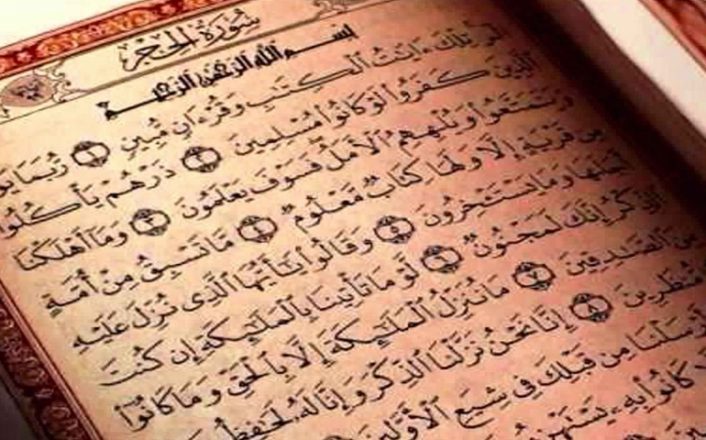 سُورَةُ الحِجْرِ
بِسْمِ اللَّهِ الرَّحْمَٰنِ الرَّحِيمِ
الٓر تِلْكَ ءَايَٰتُ ٱلْكِتَٰبِ وَقُرْءَانٍ مُّبِينٍ ١ رُّبَمَا
ٱلَّذِينَ كَفَرُوا۟ لَوْ كَانُوا۟ مُسْلِمِينَ ٢ ذَرْهُمْ يَأْكُلُوا۟
وَيَتَمَتَّعُوا۟ وَيُلْهِهِمُ ٱلْأَمَلُ فَسَوْفَ يَعْلَمُونَ ٣ وَمَآ أَهْلَكْنَا
مِن قَرْيَةٍ إِلَّا وَلَهَا كِتَابٌ مَّعْلُومٌ ٤ مَّا تَسْبِقُ مِنْ أُمَّةٍ
أَجَلَهَا وَمَا يَسْتَـْٔخِرُونَ ٥ وَقَالُوا۟ يَٰٓأَيُّهَا ٱلَّذِى نُزِّلَ عَلَيْهِ
ٱلذِّكْرُ إِنَّكَ لَمَجْنُونٌ ٦ لَّوْ مَا تَأْتِينَا بِٱلْمَلَٰٓئِكَةِ إِن كُنتَ
مِنَ ٱلصَّٰدِقِينَ ٧ مَا نُنَزِّلُ ٱلْمَلَٰٓئِكَةَ إِلَّا بِٱلْحَقِّ وَمَا كَانُوٓا۟
مُّنظَرِينَ ٨ إِنَّا نَحْنُ نَزَّلْنَا ٱلذِّكْرَ وَإِنَّا لَهُۥ لَحَٰفِظُونَ
أَرْسَلْنَا مِن قَبْلِكَ فِى شِيَعِ ٱلْأَوَّلِينَ
كَانُوا۟ بِهِۦ